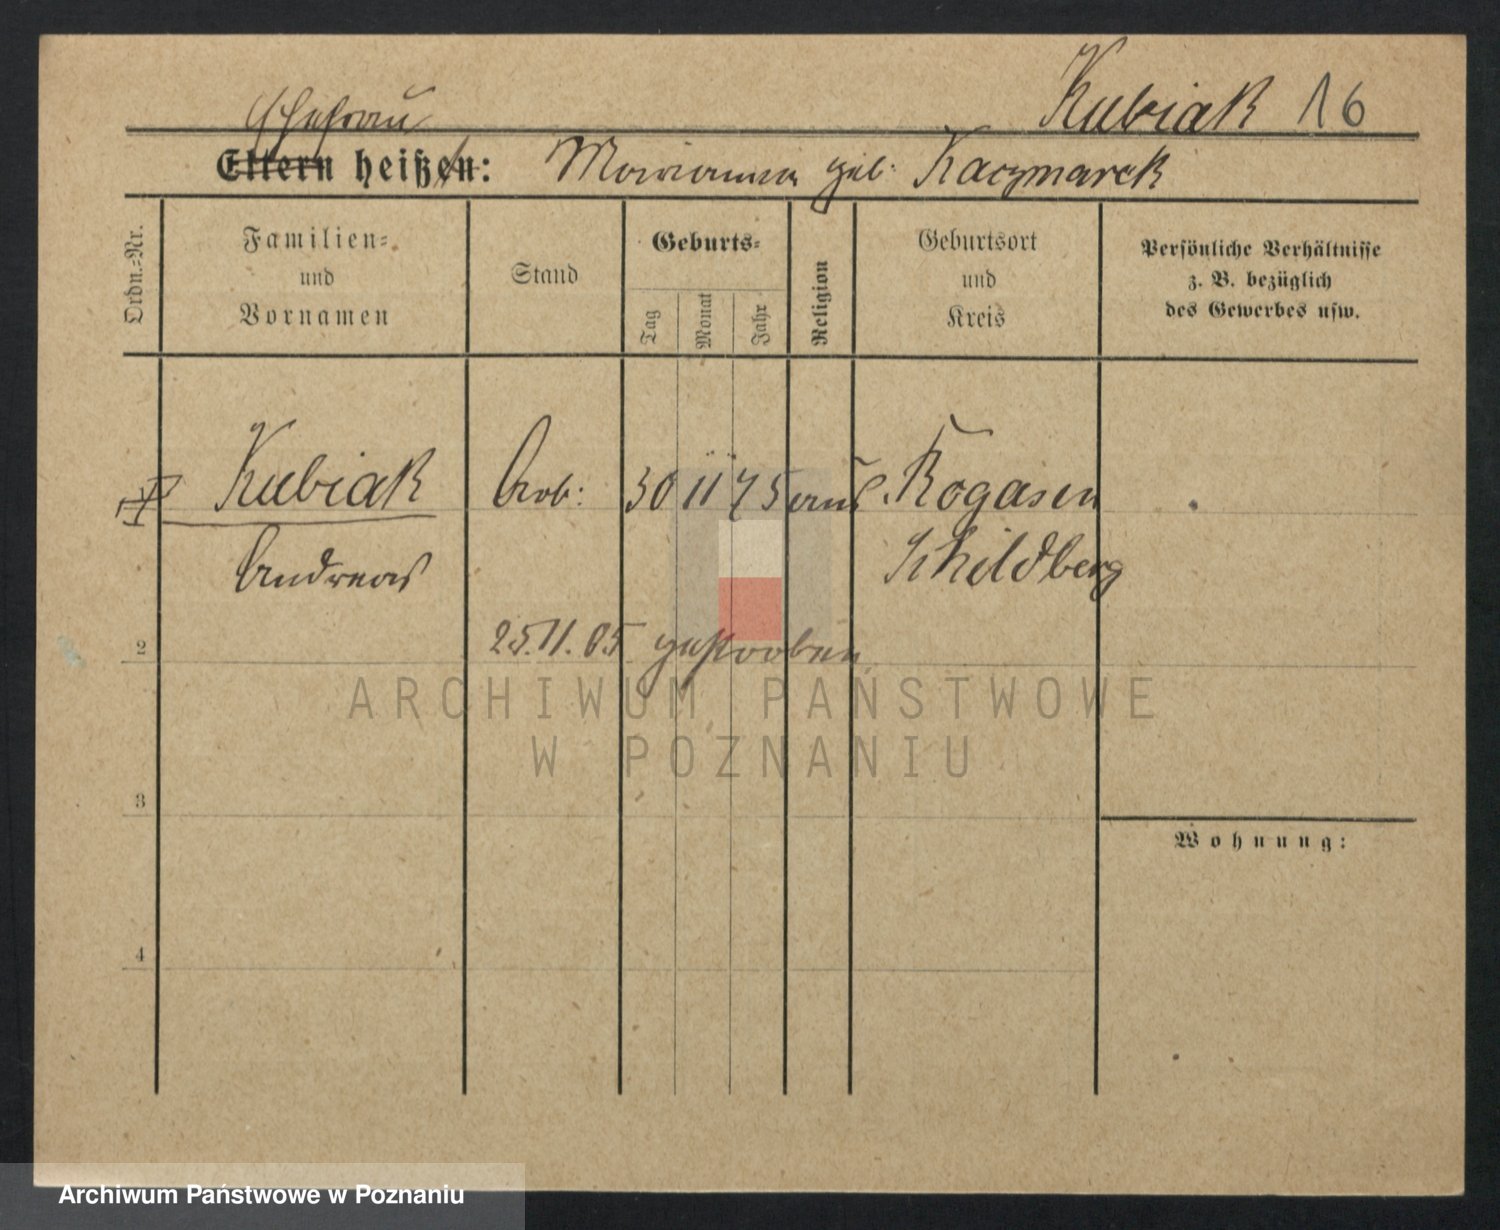 Kubiak 16
Ehefrau
Eltern heißen: Marianna geb. Kaczmarek
Ordn.-Nr.
Familien-
und
Vornamen
Stand
Geburts-
Tag
Monat
Jahr
Religion
Geburtsort
und
Kreis
Persönliche Verhältnisse
z. B. bezüglich
des Gewerbes usw.
Kubiak Arb: 30 11 75 Rogasen
Andreas Schildberg
2
25.11.05 gestorben
ARCHIWUM PAŃSTWOWE
W POZNANIU
3
Wohnung:
4
Archiwum Państwowe w Poznaniu